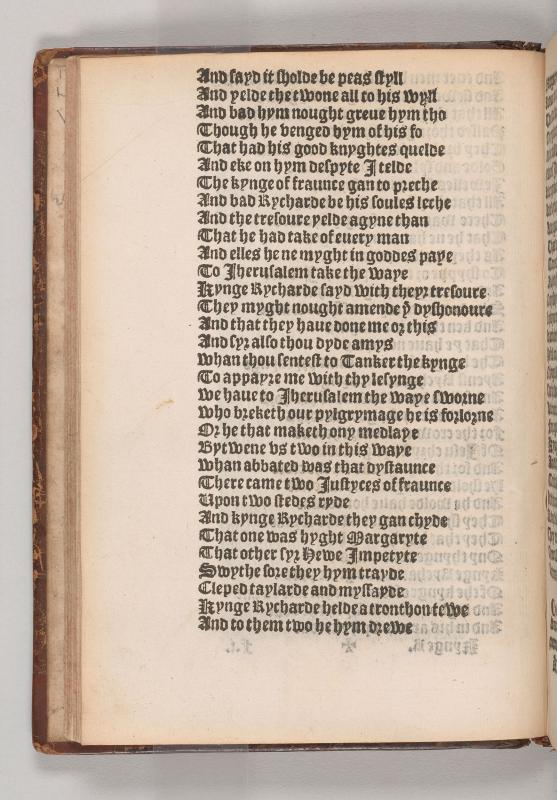 And sayd it sholde be peas styll
And yelde the twone all to his wyll
And bad hym nought greue hym tho
Though he venged hym of his fo
That had his good knyghtes quelde
And eke on hym despyte I telde
The kynge of fraunce gan to preche
And bad Rycharde be his soules leche
And the tresoure yelde agyne than
That he had take of euery man
And elles he ne myght in goddes paye
To Jherusalem take the waye
Kynge Rycharde sayd with theyr tresoure
They myght nought amende ẏ dyshonoure
And that they haue done me or this
And syr also thou dyde amys
whan thou sentest to Tanker the kynge
To appayre me with thy lesynge
we haue to Jherusalem the waye sworne
who breketh our pylgrymage he is forlorne
Or he that maketh ony medlaye
Bytwene vs two in this waye
whan abbated was that dystaunce
There came two Justyces of fraunce
Upon two stedes ryde
And kynge Rycharde they gan chyde
That one was hyght Margaryte
That other syr Hewe Impetyte
Swythe sore they hym trayde
Cleped taylarde and myssayde
Kynge Rycharde helde a tronthon tewe
And to them two he hym drewe